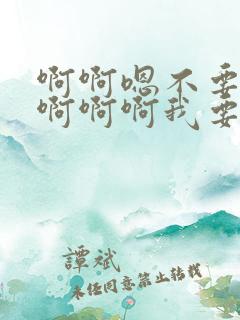 啊啊嗯不要
啊啊啊我要
譚斌
未经同意禁止转载